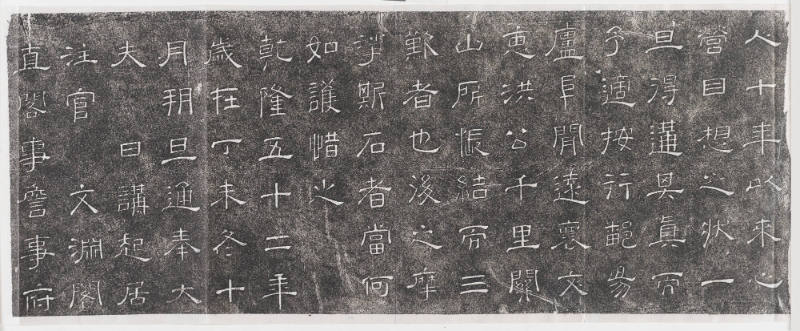 人十年以来心
營目想之狀一
旦得遘其真而
予適按行鄱昜
廬阜閒遠褱文
惠洪公千里關
山所悵結而三
歎者也後之摩
挲斯石者當何
如護惜之
乾隆五十二年
歲在丁未冬十
月朔旦通奉大
夫 日講起居
注官 文淵閣
直閣事詹事府